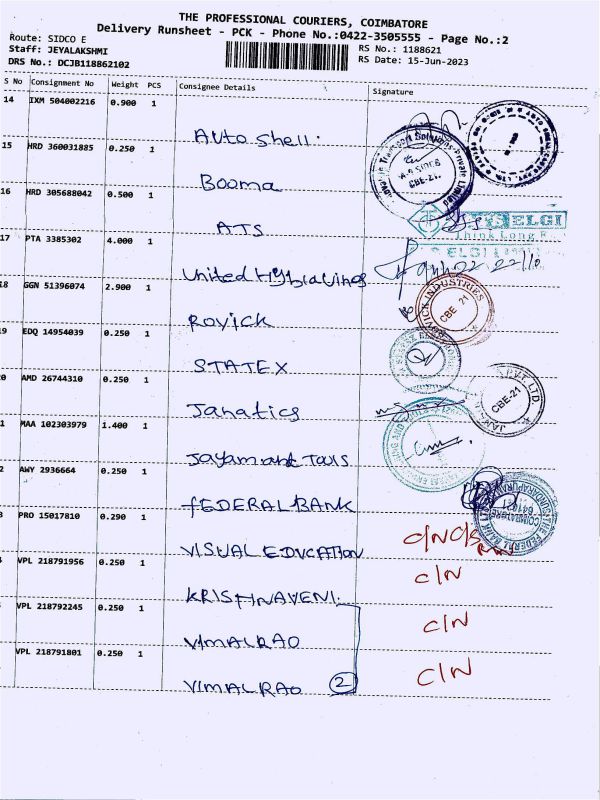 THE PROFESSIONAL COURIERS, COIMBATORE
Delivery Runsheet - PCK - Phone No.:0422-3505555 - Page No.:2
Route: SIDCO E
RS No.: 1188621
Staff: JEYALAKSHMI
RS Date: 15-Jun-2023
DRS No.: DCJB118862102
S No Consignment No Weight PCS Consignee Details Signature
14 IXM 504002216 0.900 1
Auto Shell.
15 HRD 360031885 0.250 1
Booma
16 HRD 305688042 0.500 1
ATS
ELGI
17 PTA 3385302 4.000 1
United Hybravings
18 GGN 51396074 2.900 1
Rovick
ROVICK INDUSTRIES
CBE 21
9 EDQ 14954039 0.250 1
STATEX
0 AMD 26744310 0.250 1
Janatics
CBE-21
1 MAA 102303979 1.400 1
Jayam and Tools
2 AWY 2936664 0.250 1
FEDERAL BANK
3 PRO 15017810 0.290 1
VISUAL EDUCATION
C/N
VPL 218791956 0.250 1
KRISHNAVENI.
C/N
VPL 218792245 0.250 1
VIMALRAO
C/N
VPL 218791801 0.250 1
VIMALRAO 2
C/N